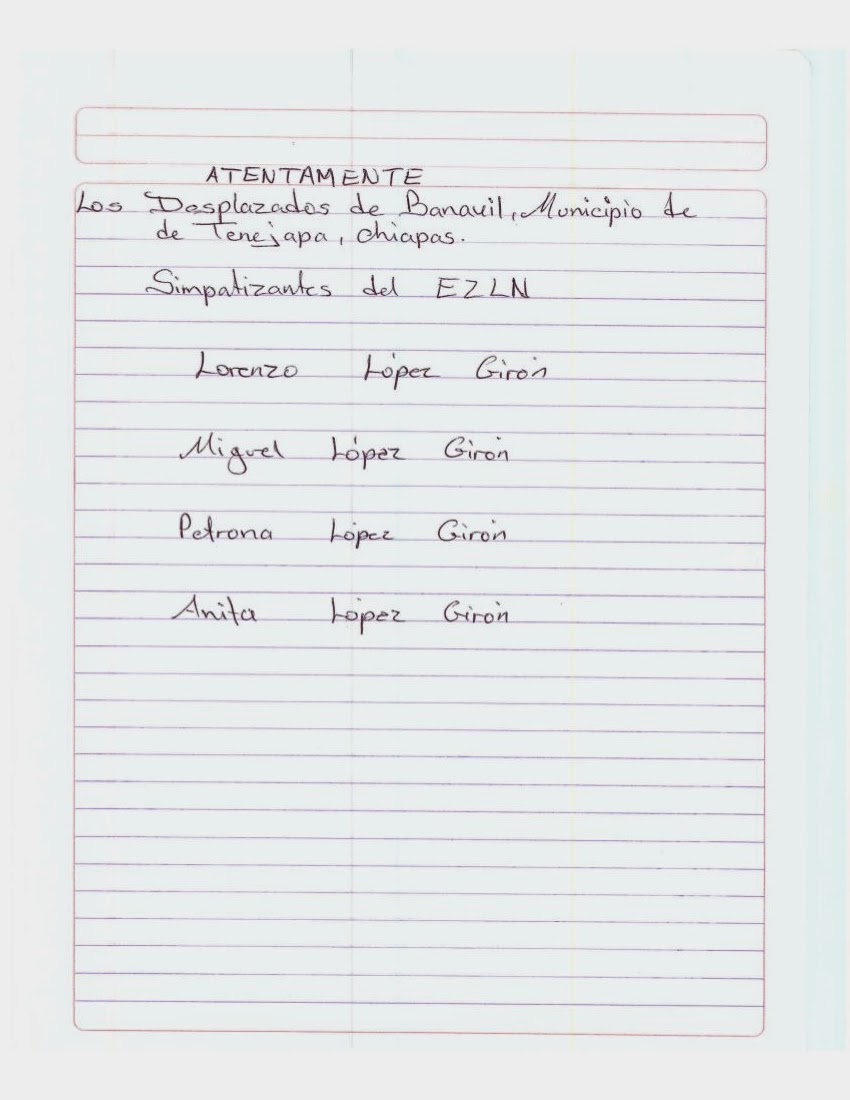 ATENTAMENTE
Los Desplazados de Banavil, Municipio de
de Tenejapa, Chiapas.
Simpatizantes del EZLN
Lorenzo López Girón
Miguel López Girón
Petrona López Girón
Anita López Girón